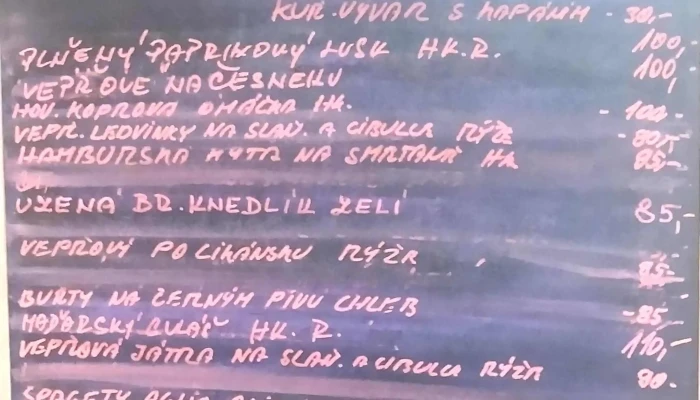 KUR. VÝVAR S KAPÁNÍM - 30,-
PLNĚNÝ PAPRIKOVÝ LUSK HK.R. 100,-
VEPŘOVÉ NA ČESNEKU 100,-
HOV. KOPROVÁ OMÁČKA HK. - 100-
VEPŘ. LEDVINKY NA SLAN. A CIBULCE RÝŽE - 80,-
HAMBURSKÁ KÝTA NA SMETANĚ HK 85,-
UZENÁ BR. KNEDLÍK ZELÍ 85,-
VEPŘOVÝ PO CIKÁNSKU RÝŽE 85-
BUŘTY NA ČERNÉM PIVU CHLEB - 85
MAĎARSKÝ GULÁŠ HK. R. 110,-
VEPŘOVÁ JÁTRA NA SLAN. A CIBULCE RÝŽE 80-
SPAGETY